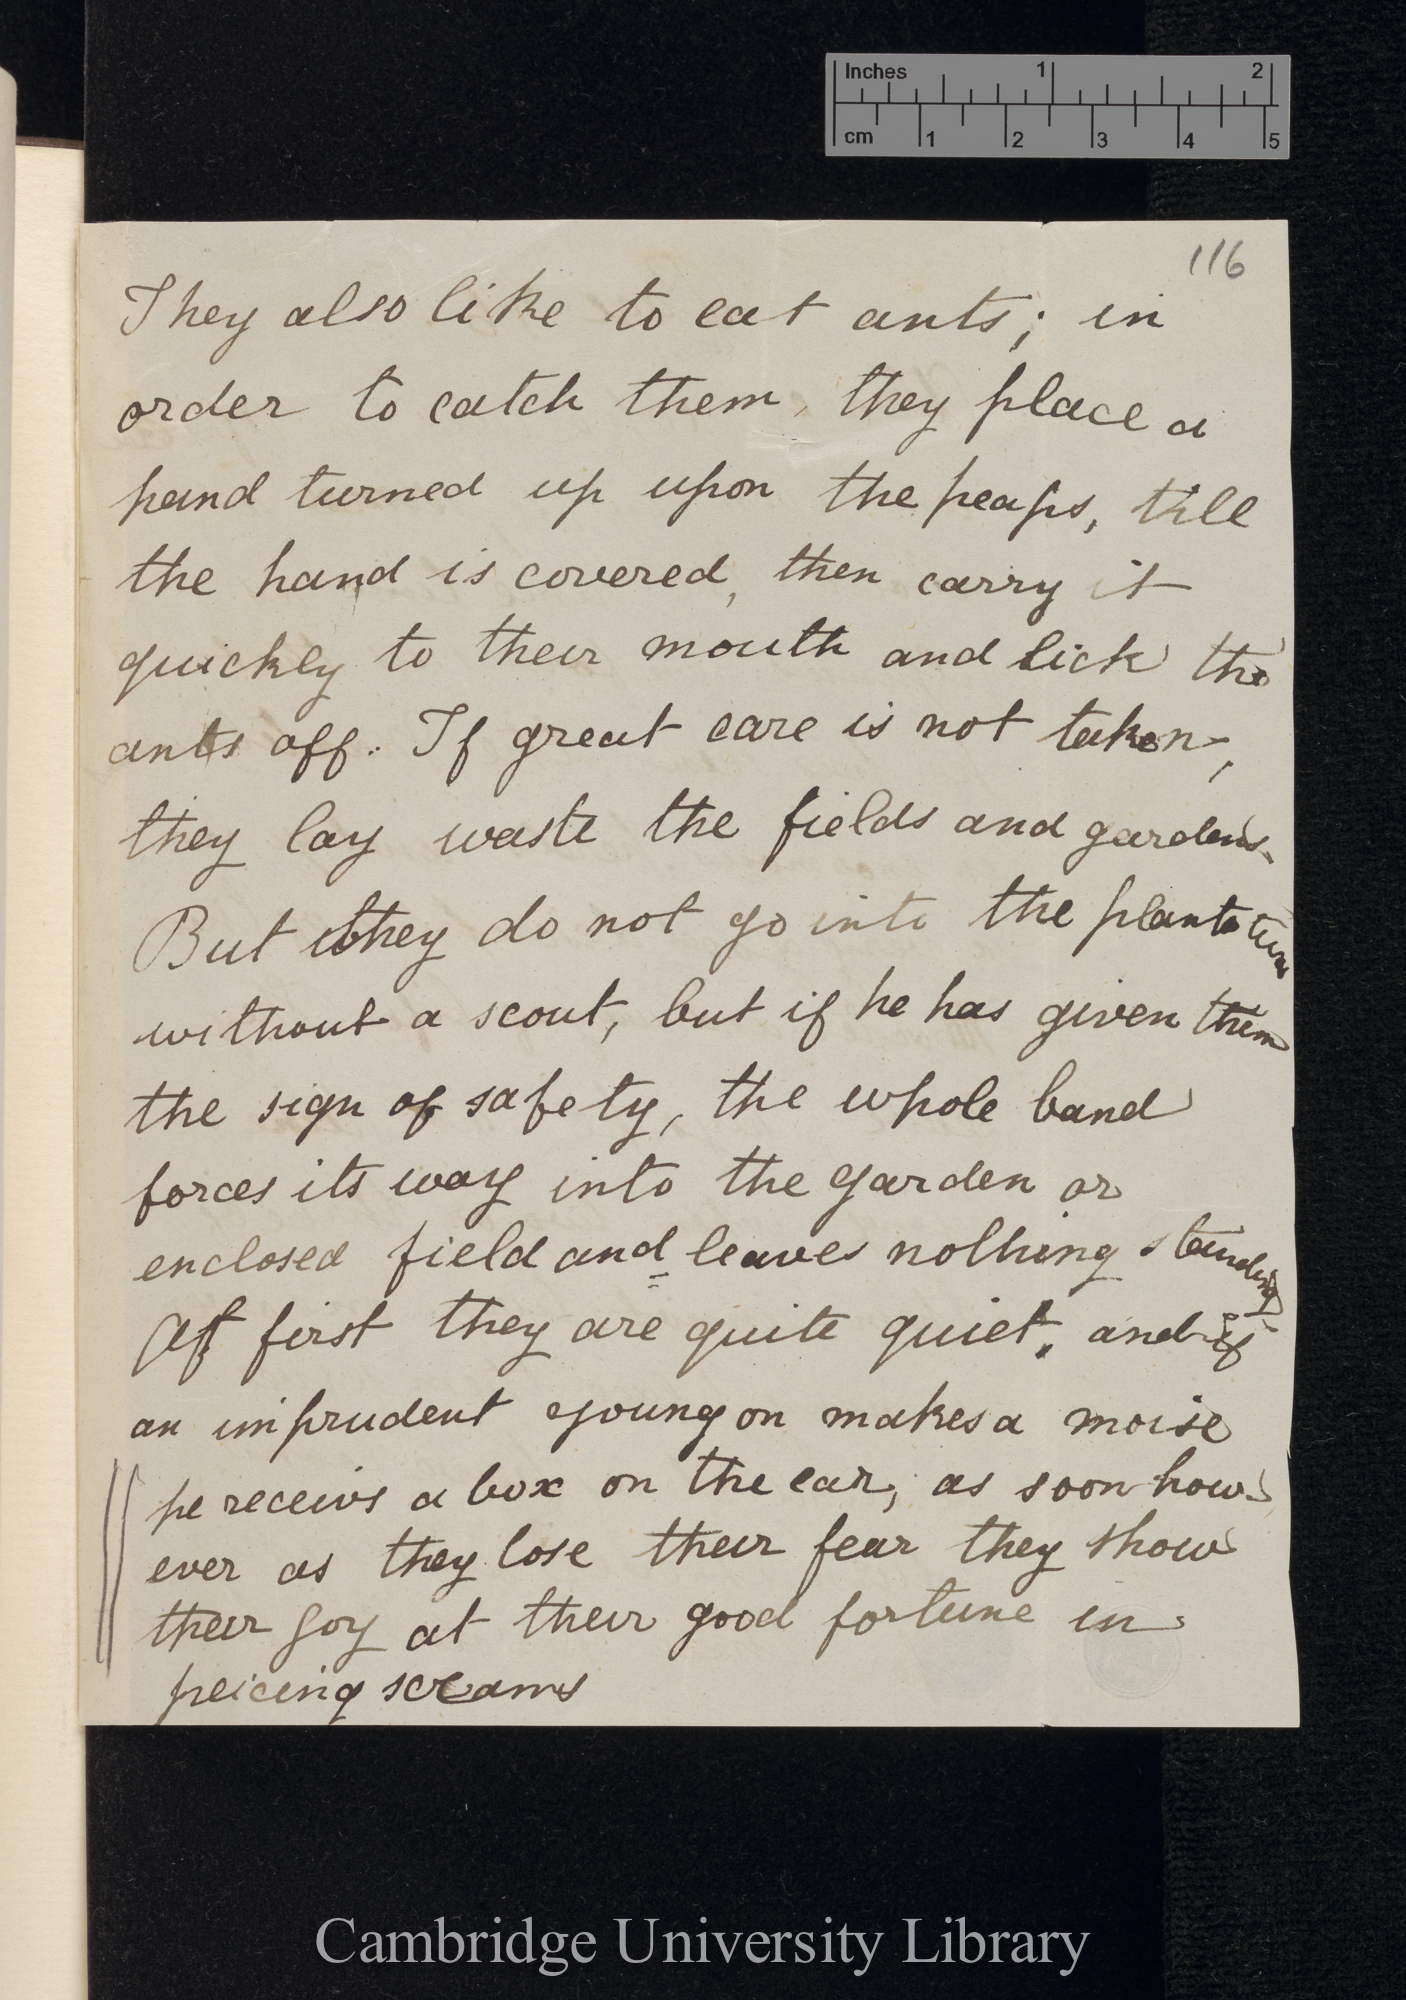 Inches 1 2
cm 1 2 3 4 5
116
They also like to eat ants; in
order to catch them, they place a
hand turned up upon the heaps, till
the hand is covered, then carry it
quickly to their mouth and lick the
ants off. If great care is not taken,
they lay waste the fields and gardens.
But they do not go into the
without a scout, but if he has given them
the sign of safety, the whole band
forces its way into the garden or
enclosed field and leaves nothing standing.
At first they are quite quiet, and if
an imprudent young on makes a moise
he receivs a box on the ear, as soon how-
ever as they lose their fear they show
their joy at their good fortune in
peicing screams
Cambridge University Library